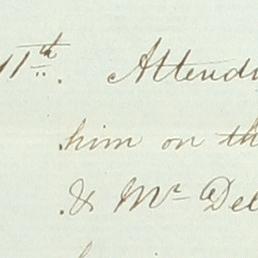 11th. Attend
him on the
& Mr Del